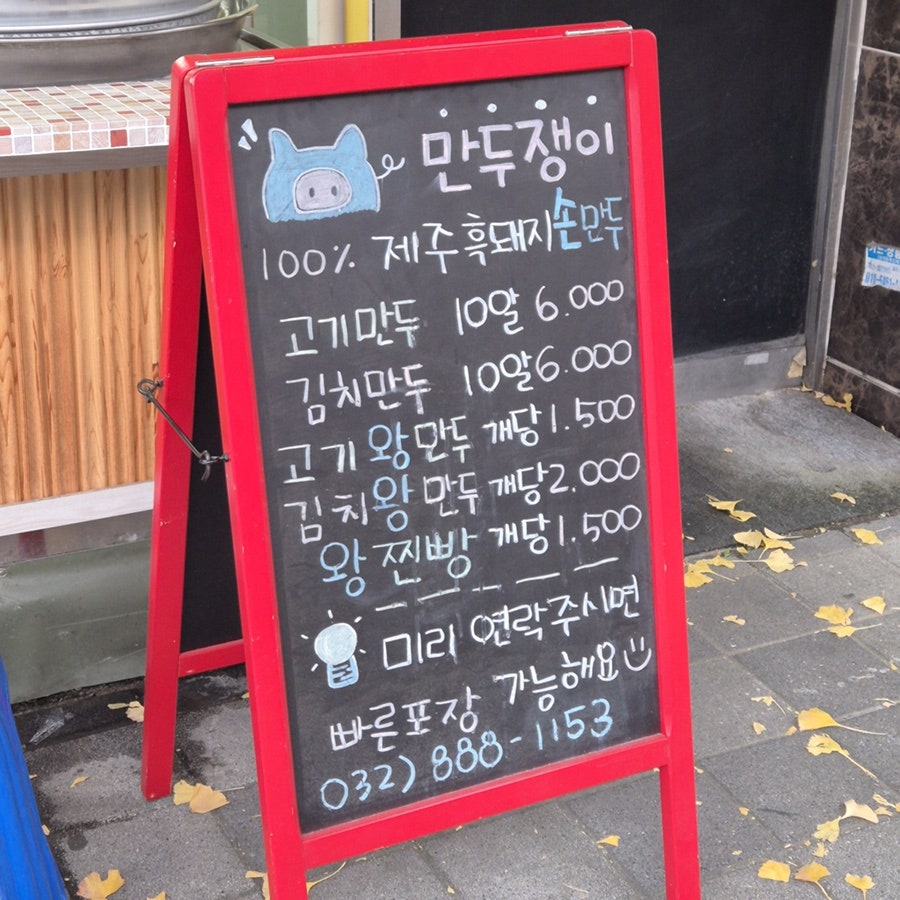 만두쟁이
100% 제주흑돼지손만두
고기만두 10알 6.000
김치만두 10알 6.000
고기왕만두 개당 1.500
김치왕만두 개당 2.000
왕찐빵 개당 1.500
미리 연락주시면
빠른포장 가능해요
032) 888-1153